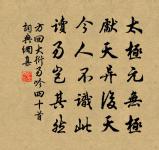 太極元無
獻天异後天
今人不識此
讀易豈其然
方回大衍易吟四十首
詞典網集